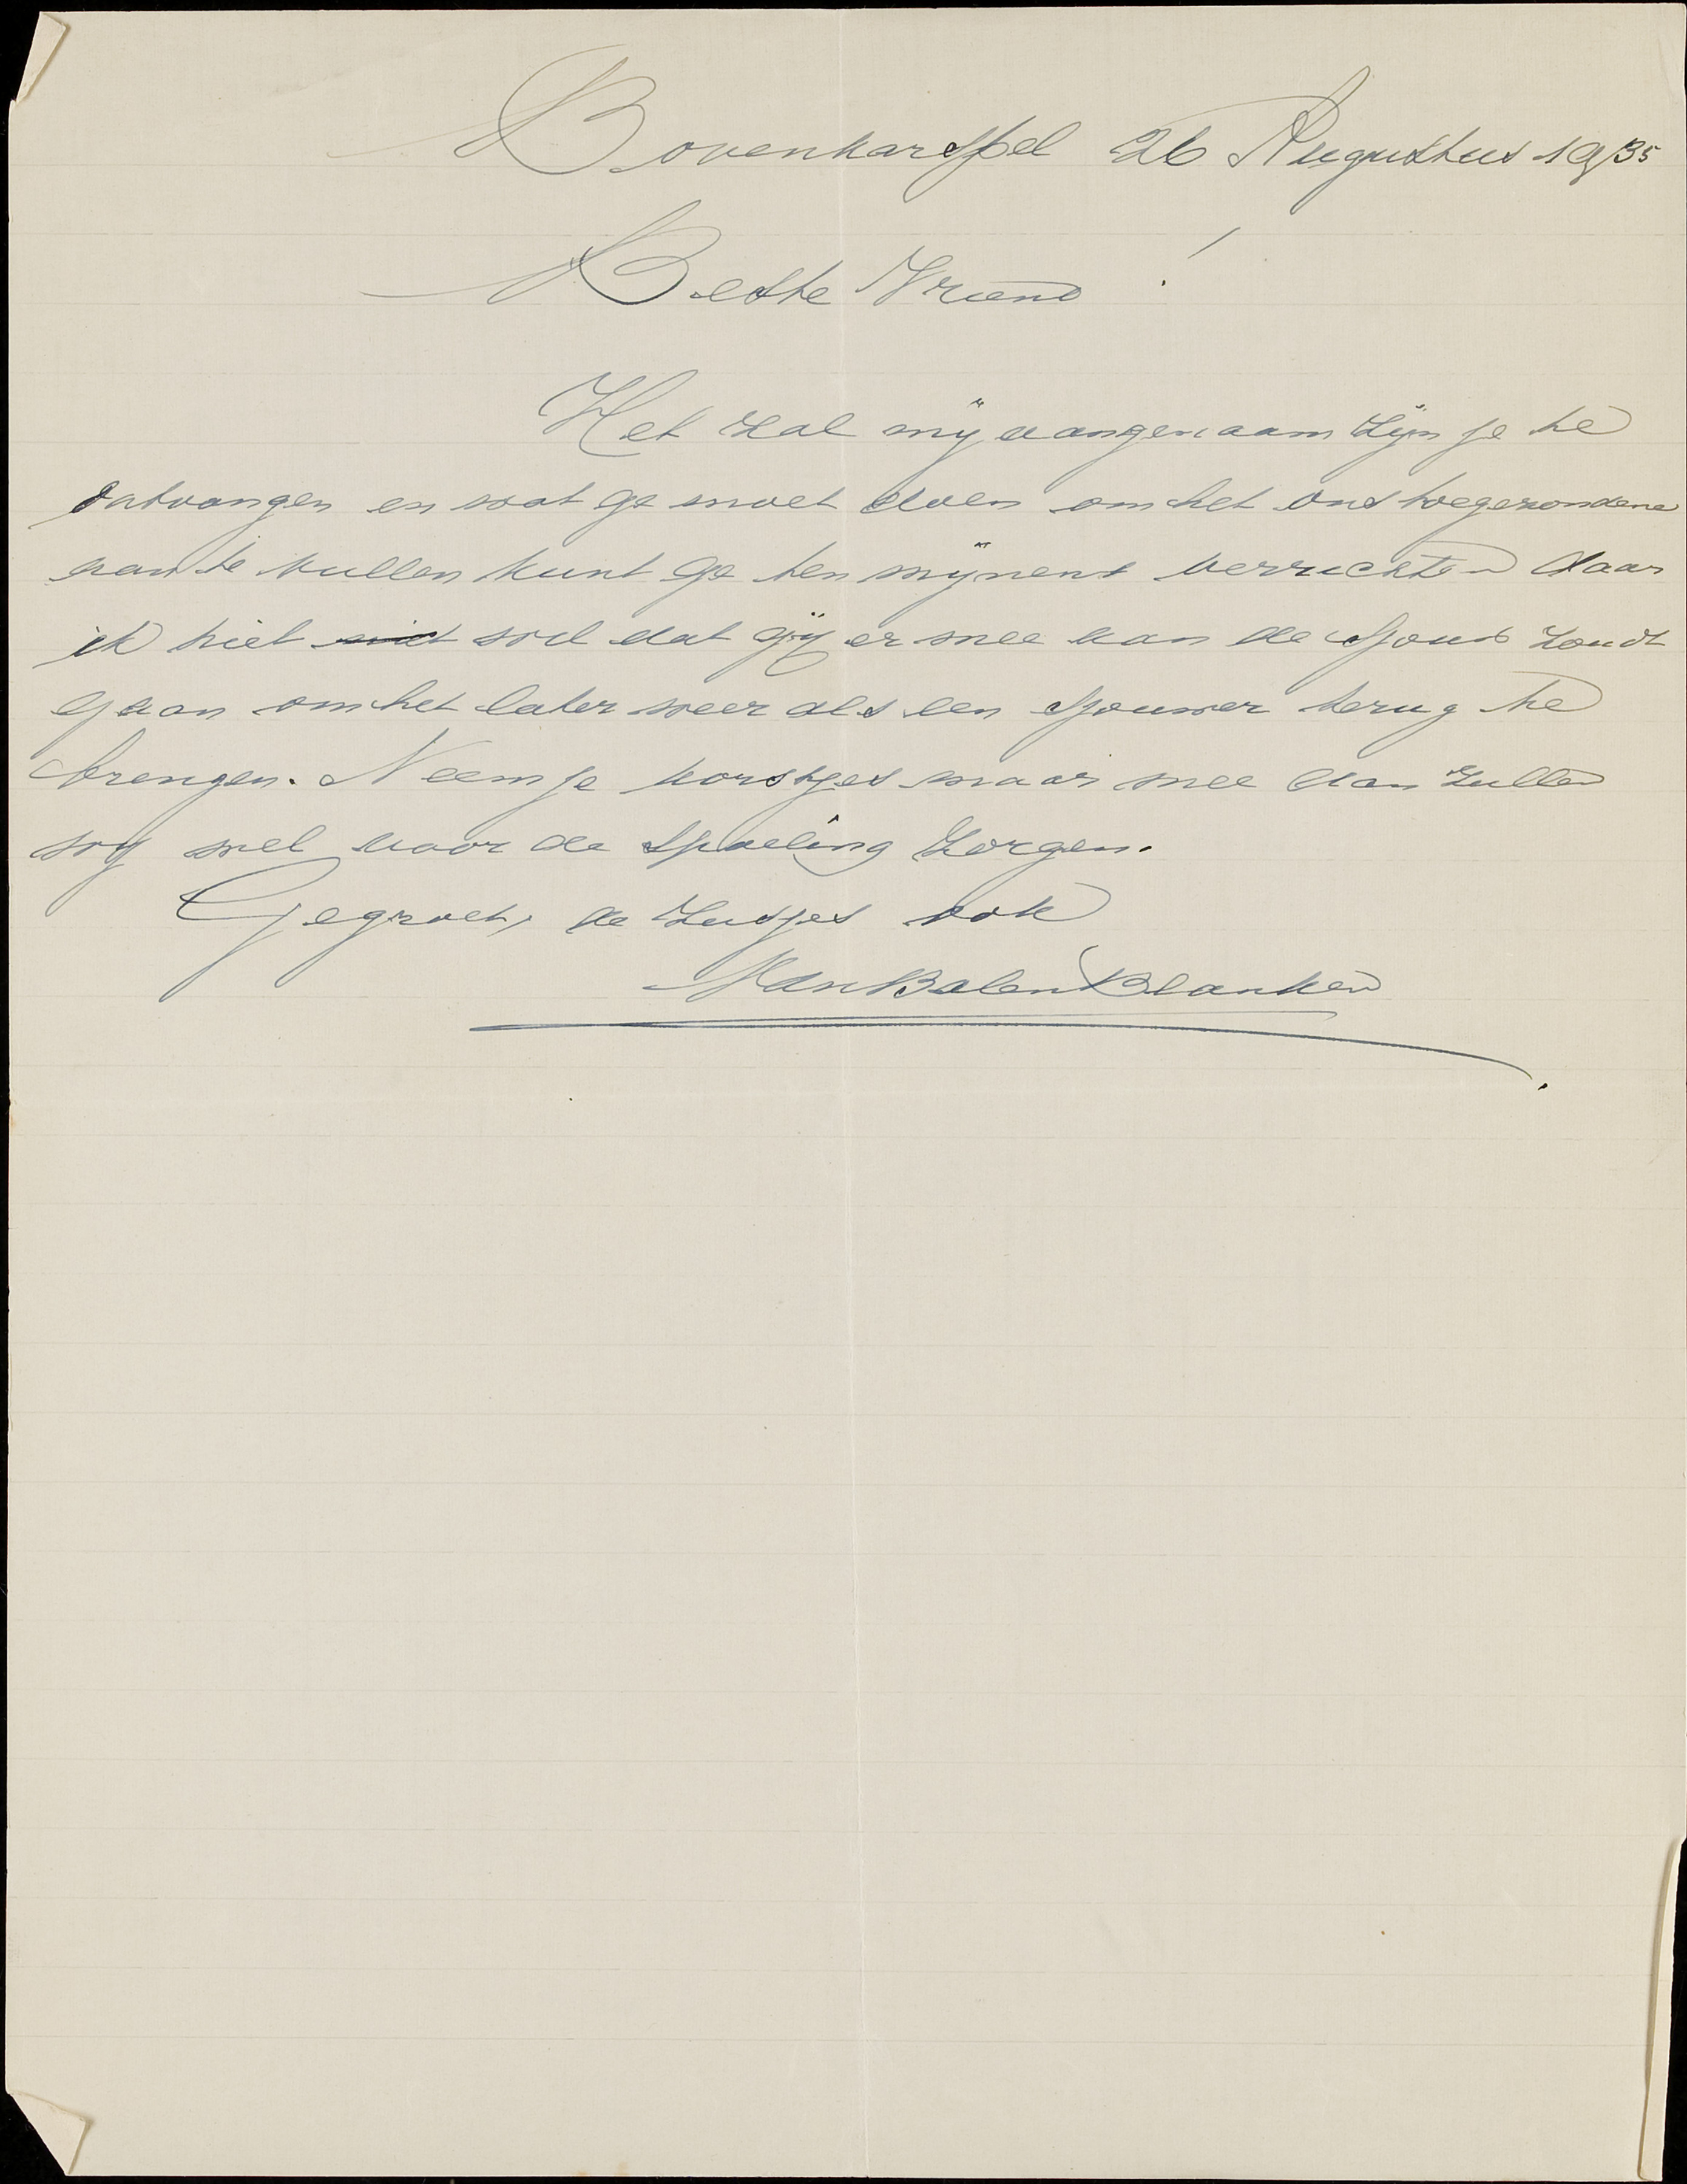 Bovenkarspel 26 Augustus 1935
Beste Vriend !
Het zal mij aangenaam zijn je te
ontvangen en wat ge moet doen om het ons toegezondene
aan te vullen kunt ge ten mijnent verrichten daar
ik niet niet wil dat gij er mee aan de sjouw zoudt
gaan om het later weer als een sjouwer terug te
brengen. Neem je korstjes maar mee dan zullen
wij wel voor de spoeling zorgen.
Gegroet, de zusjes ook
VanBalenBlanken